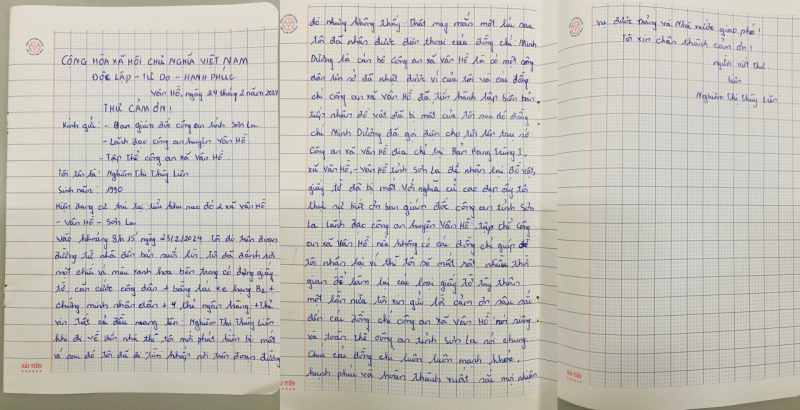 CỘNG HÒA XÃ HỘI CHỦ NGHĨA VIỆT NAM
ĐỘC LẬP - TỰ DO - HẠNH PHÚC
Vân Hồ, ngày 24 tháng 2 năm 2024
THƯ CẢM ƠN!
Kính gửi: - Ban giám đốc công an tỉnh Sơn La
- Lãnh đạo công an huyện Vân Hồ
- Tập thể công an xã Vân Hồ
Tôi tên là: Nghiêm Thị Thúy Liên
Sinh năm: 1990
Hiện đang cư trú tại tiểu khu sao đỏ 1 xã Vân Hồ
- Vân Hồ - Sơn La
Vào khoảng 8h15 ngày 23/2/2024 tôi đi trên đoạn
đường từ nhà đến bản suối lìn, tôi đã đánh rơi
một chiếc ví màu xanh hoa bên trong có đựng giấy
tờ, căn cước công dân + bằng lái xe hạng B2 +
chứng minh nhân dân + 4 thẻ ngân hàng + thẻ
vin tất cả đều mang tên Nghiêm Thị Thúy Liên
khi đi về đến nhà thì tôi mới phát hiện bị mất
ví sau đó tôi đã đi tìm khắp nơi trên đoạn đường
HẢI TIẾN
đó nhưng không thấy. Thật may mắn một lúc sau
tôi đã nhận được điện thoại của đồng chí Minh
Dương là cán bộ Công an xã Vân Hồ là có một công
dân lìn sồ đã nhặt được ví của tôi và các đồng
chí công an xã Vân Hồ đã tiến hành lập biên bản
tiếp nhận đồ vật đã bị mất của tôi sau đó đồng
chí Minh Dương đã gọi điện cho tôi lên trụ sở
Công an xã Vân Hồ địa chỉ tại Bản Hang Trùng I,
xã Vân Hồ, - Vân Hồ tỉnh Sơn La để nhận lại đồ vật,
giấy tờ đã bị mất. Với nghĩa cử cao đẹp ấy tôi
thực sự biết ơn ban giám đốc công an tỉnh Sơn
La, lãnh đạo công an huyện Vân Hồ, tập thể công
an xã Vân Hồ nếu không có các đồng chí giúp đỡ
tôi nhận lại ví thì tôi sẽ mất rất nhiều thời
gian để làm lại các loại giấy tờ tùy thân,
một lần nữa tôi xin gửi lời cảm ơn sâu sắc
đến các đồng chí công an xã Vân Hồ nói riêng
và toàn thể công an tỉnh Sơn La nói chung.
Chúc các đồng chí luôn luôn mạnh khỏe,
hạnh phúc và hoàn thành xuất sắc mọi nhiệm
HẢI TIẾN
vụ được Đảng và Nhà nước giao phó!
Tôi xin chân thành cảm ơn!
người viết thư
Liên
Nghiêm Thị Thúy Liên